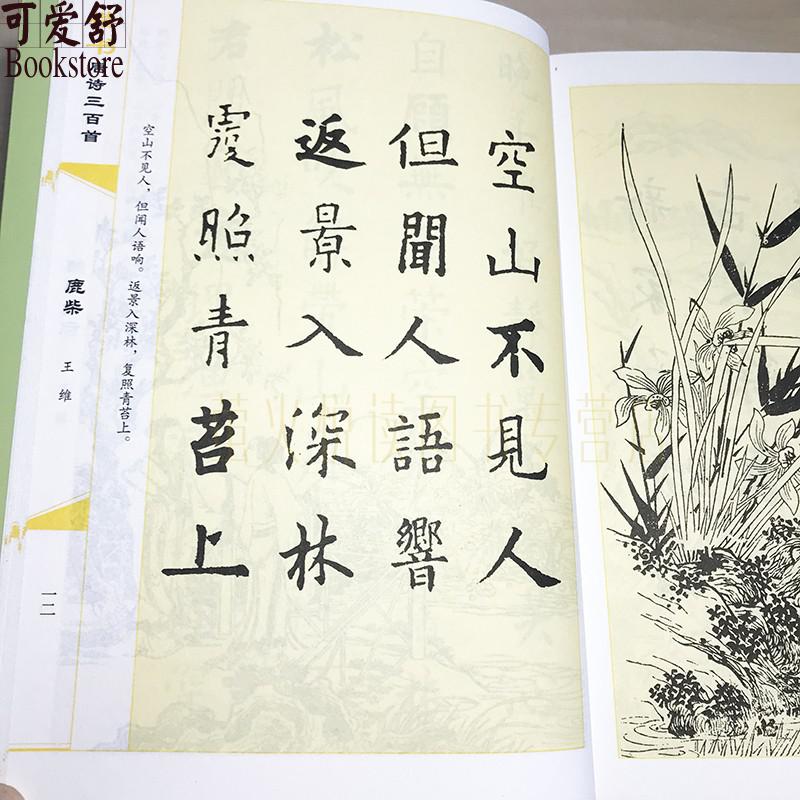 可爱舒
Bookstore
书
唐诗三百首
空山不見人
但聞人語響
返景入深林
覆照青苔上
空山不见人，但闻人语响。返景入深林，复照青苔上。
鹿柴
王维
一二
萤火阅读图书专营店